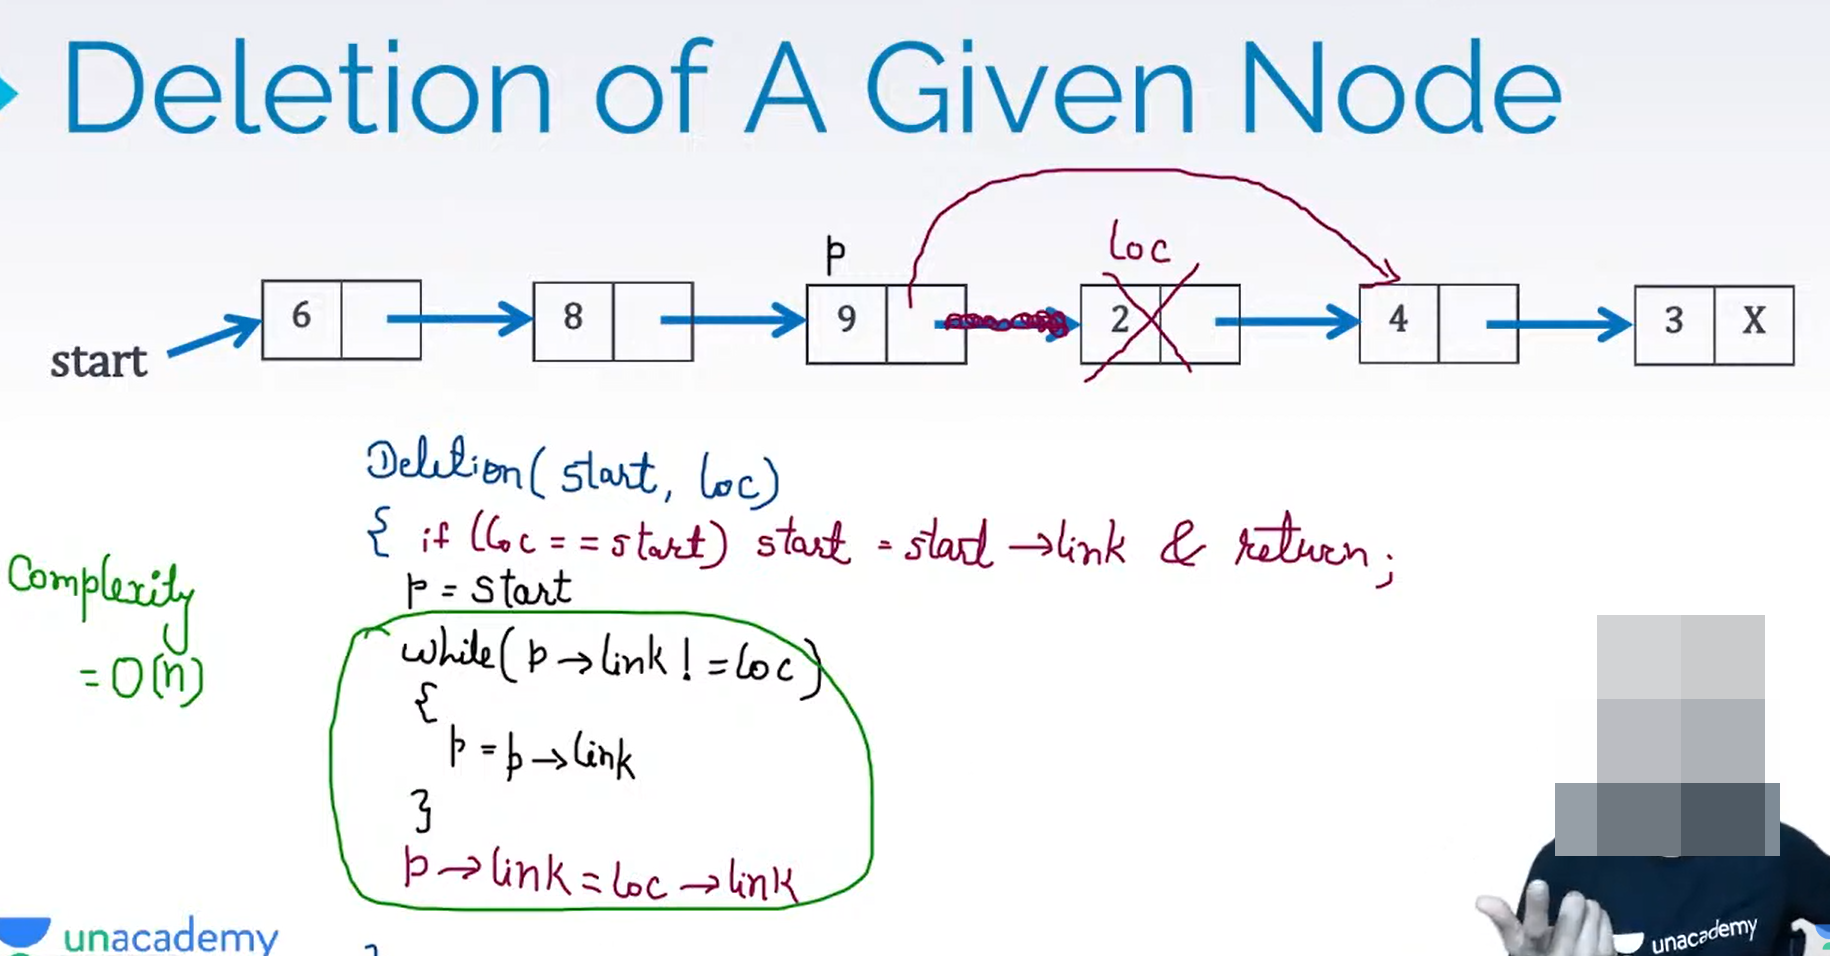 Deletion of A Given Node
p
loc
start
6
8
9
2
4
3 X
Deletion(start, loc)
{ if (loc == start) start = start →link & return;
Complexity
= O(n)
p = start
while( p → link != loc )
{
p = p → link
}
p → link = loc → link
unacademy
unacademy